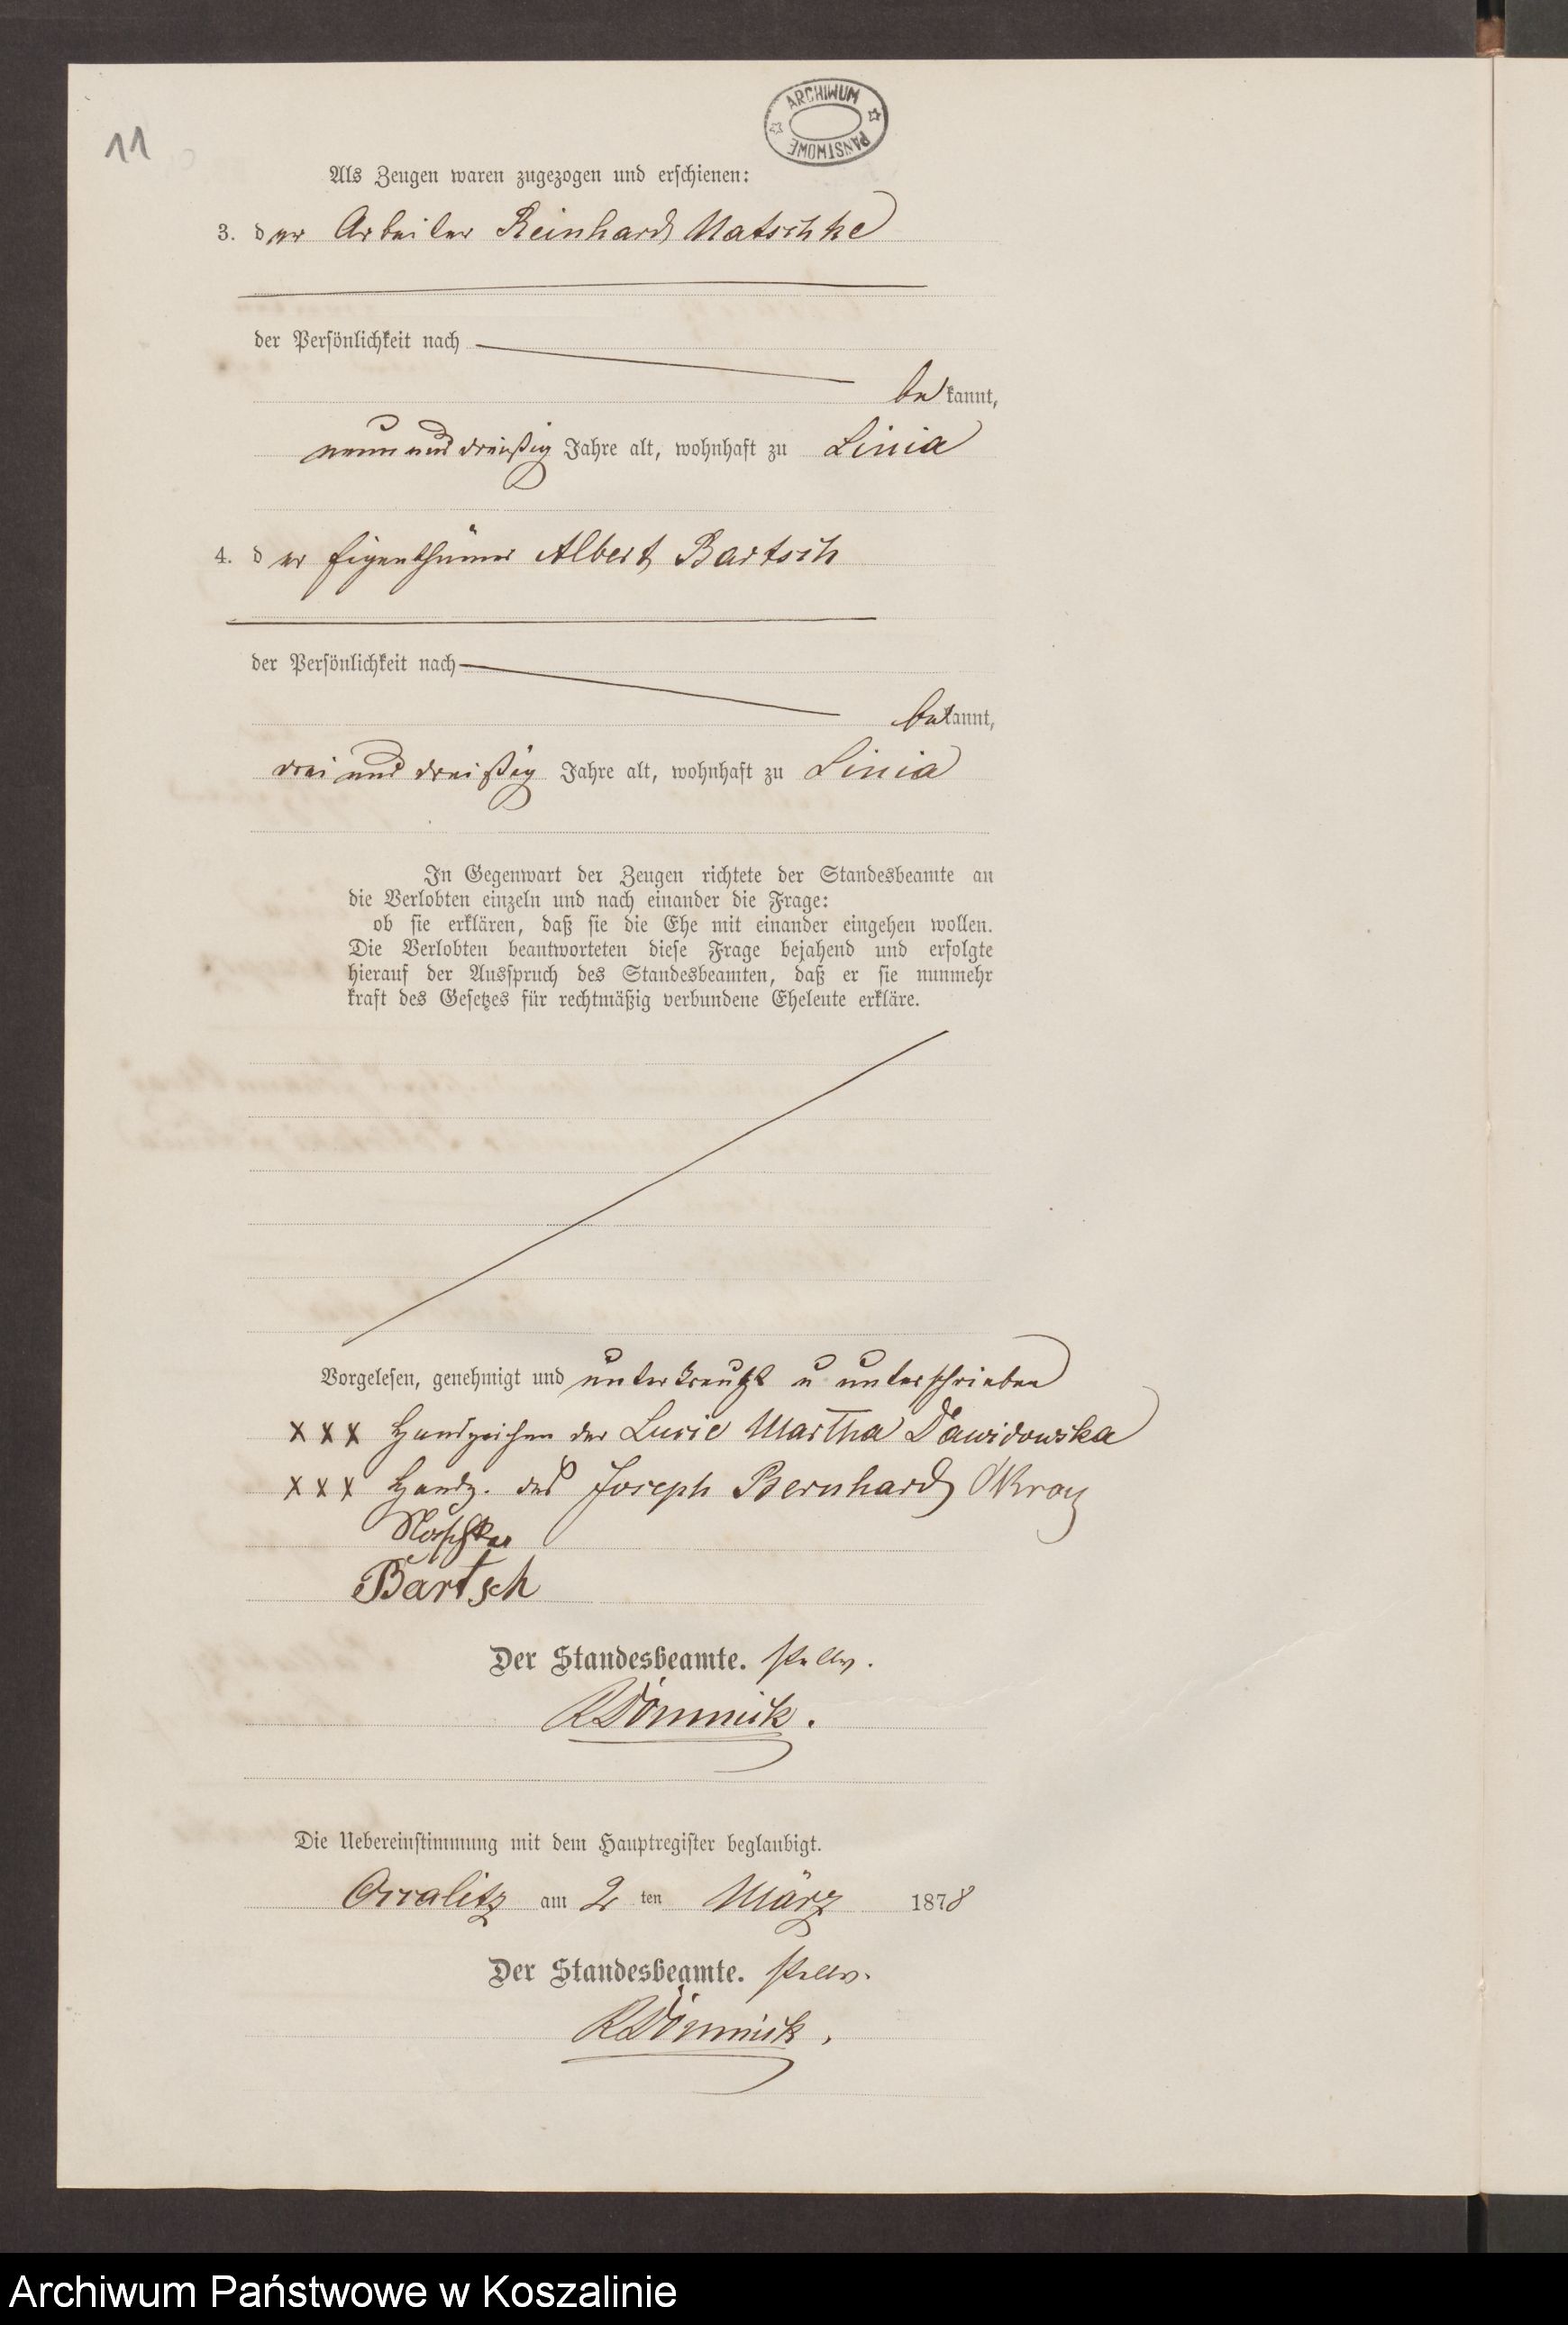 11
ARCHIWUM PAŃSTWOWE
Als Zeugen waren zugezogen und erschienen:
3. der Arbeiter Reinhard Matschke
der Persönlichkeit nach
bekannt,
neun und dreißig Jahre alt, wohnhaft zu Linia
4. der Eigenthümer Albert Bartsch
der Persönlichkeit nach
bekannt,
drei und dreißig Jahre alt, wohnhaft zu Linia
In Gegenwart der Zeugen richtete der Standesbeamte an
die Verlobten einzeln und nach einander die Frage:
ob sie erklären, daß sie die Ehe mit einander eingehen wollen.
Die Verlobten beantworteten diese Frage bejahend und erfolgte
hierauf der Ausspruch des Standesbeamten, daß er sie nunmehr
kraft des Gesetzes für rechtmäßig verbundene Eheleute erkläre.
Vorgelesen, genehmigt und unterkreuzt u unterschrieben
xxx Handzeichen der Lucie Martha Dawidowska
xxx Handz. des Joseph Bernhard
Bartsch
Der Standesbeamte. stellv.
RDömnick.
Die Uebereinstimmung mit dem Hauptregister beglaubigt.
Ossalitz am 2 ten März 1878
Der Standesbeamte. stellv.
RDömnick.
Archiwum Państwowe w Koszalinie